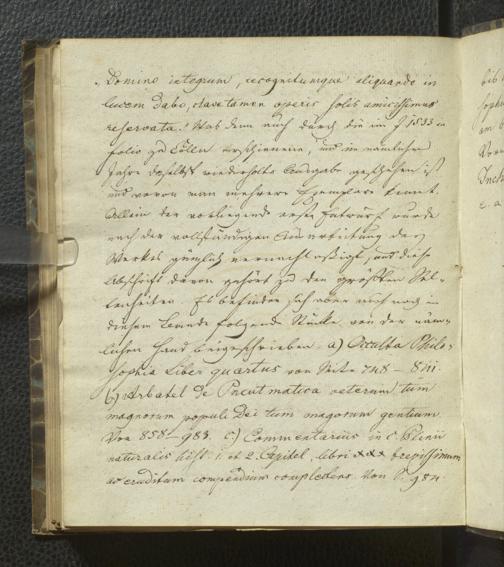 „Domino integrum, recognitumque aliquando in
lucem dabo, clave tamen operis solis amicissimus
reservata." Was denn auch durch die im J. 1533 in
folio zu Cölln erschienene, und im nämlichen
Jahre daselbst wiederholte Ausgabe geschehen ist
und wovon man mehrere Exemplare kennt.
Allein der vorliegende erste Entwurf wurde
nach der vollständigen Ausarbeitung des
Werkes gänzlich vernachlässigt, und diese
Abschrift davon gehört zu den größten Sel-
tenheiten. Es befinden sich aber auch noch in
diesem Bande folgende Stücke von der näm-
lichen Hand beigeschrieben. a) Occulta Philo-
sophia Liber quartus von Seite 748 – 841.
b) Arbatel de Pneumatica veterum tum
magnorum populi Dei tum magorum gentium
Von 858 – 983. c) Commentarius in C. Plinii
naturalis hist. 1. et 2. Capitel, libri xxx brevissimum
ac eruditum compendium complectens. Von S. 984